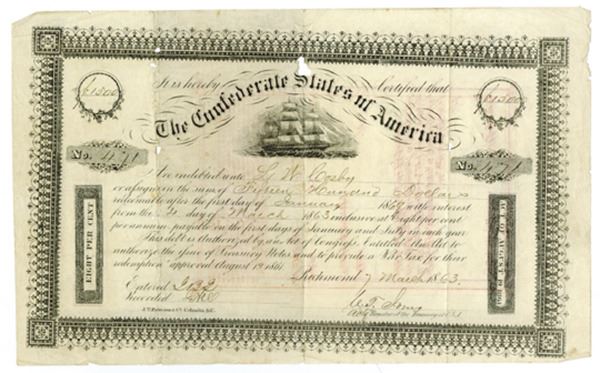 $1500
It is hereby Certified that
$1500
The Confederate States of America
No. 471
No. 471
Are indebted unto G. W. Cosby
or assigns in the sum of Fifteen Hundred Dollars
redeemable after the first day of January 186 with interest
from the day of March 1863 inclusive at Eight per cent
per annum, payable on the first days of January and July in each year
This debt is Authorized by an Act of Congress Entitled An Act to
authorize the issue of Treasury Notes and to provide a War Tax for their
redemption approved August 19 1861
EIGHT PER CENT
ACT OF AUGUST 19 1861
Richmond 7 March 1863.
Entered
Recorded
of the Treasury C.S.A.
J.T. Paterson & Co Columbia, S.C.